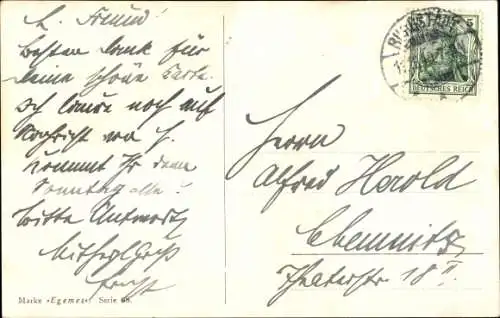 L. Freund!
Besten Dank für
Deine schöne Karte.
Ich laure noch auf
Nachricht von H.
Kommt Ihr denn
Sonntag alle?
Bitte Antwort
Mit hrzl Gruß
Marke »Egemes« Serie 68.
5
DEUTSCHES REICH
Herrn
Alfred Herold
Chemnitz
Theaterstr 18 II